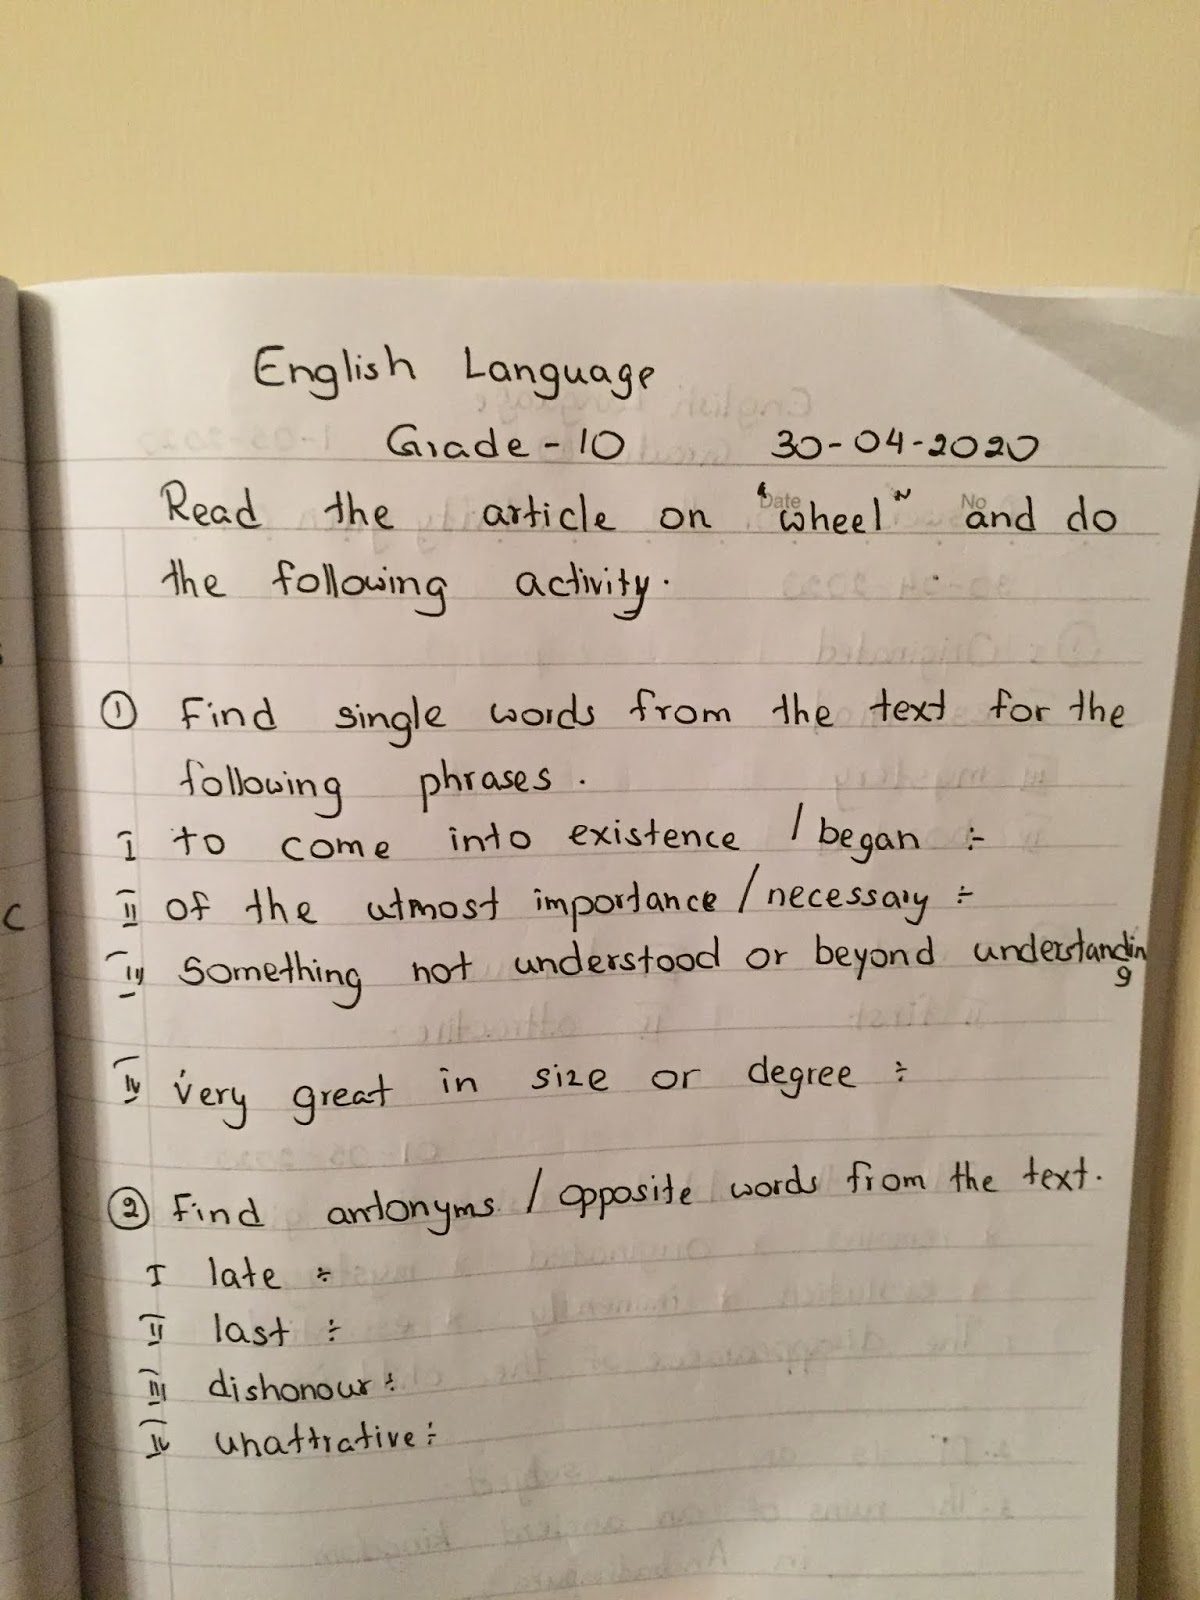 English Language
Grade - 10 30-04-2020
Date No
Read the article on "wheel" and do
the following activity.
① Find single words from the text for the
following phrases.
I to come into existence / began :-
II of the utmost importance / necessary ÷
III Something not understood or beyond understanding
IV very great in size or degree ÷
② Find antonyms / opposite words from the text.
I late ÷
II last ÷
III dishonour ÷
IV unattrative ÷
C